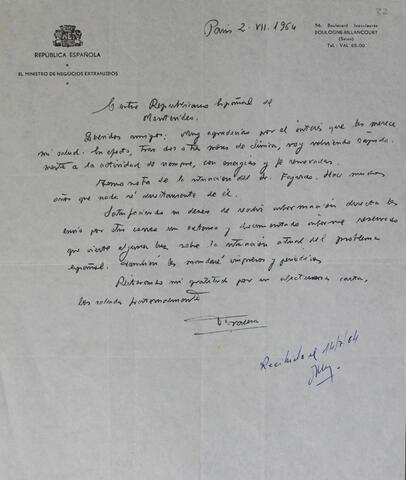 82
REPÚBLICA ESPAÑOLA
EL MINISTRO DE NEGOCIOS EXTRANJEROS
París 2. VII. 1964
96, Boulevard
BOULOGNE-BILLANCOURT
(Seine)
Tel.: VAL 65-00
Centro Republicano Español de
Montevideo.
Queridos amigos: Muy agradecido por el interés que les merece
mi salud. En efecto, tras dos o tres meses de clínica, voy volviendo rápida-
mente a la actividad de siempre, con energías y fe renovadas.
Tomo nota de la situación del Dr. Fajardo. Hace muchos
años que nada sé directamente de él.
Satisfaciendo su deseo de recibir información directa les
envío por este correo un extenso y documentado informe reservado
que vierte alguna luz sobre la situación actual del problema
español. También les mandaré impresos y periódicos
Reiterando mi gratitud por su afectuosa carta,
les saluda fraternalmente
Recibido el 14/7/64